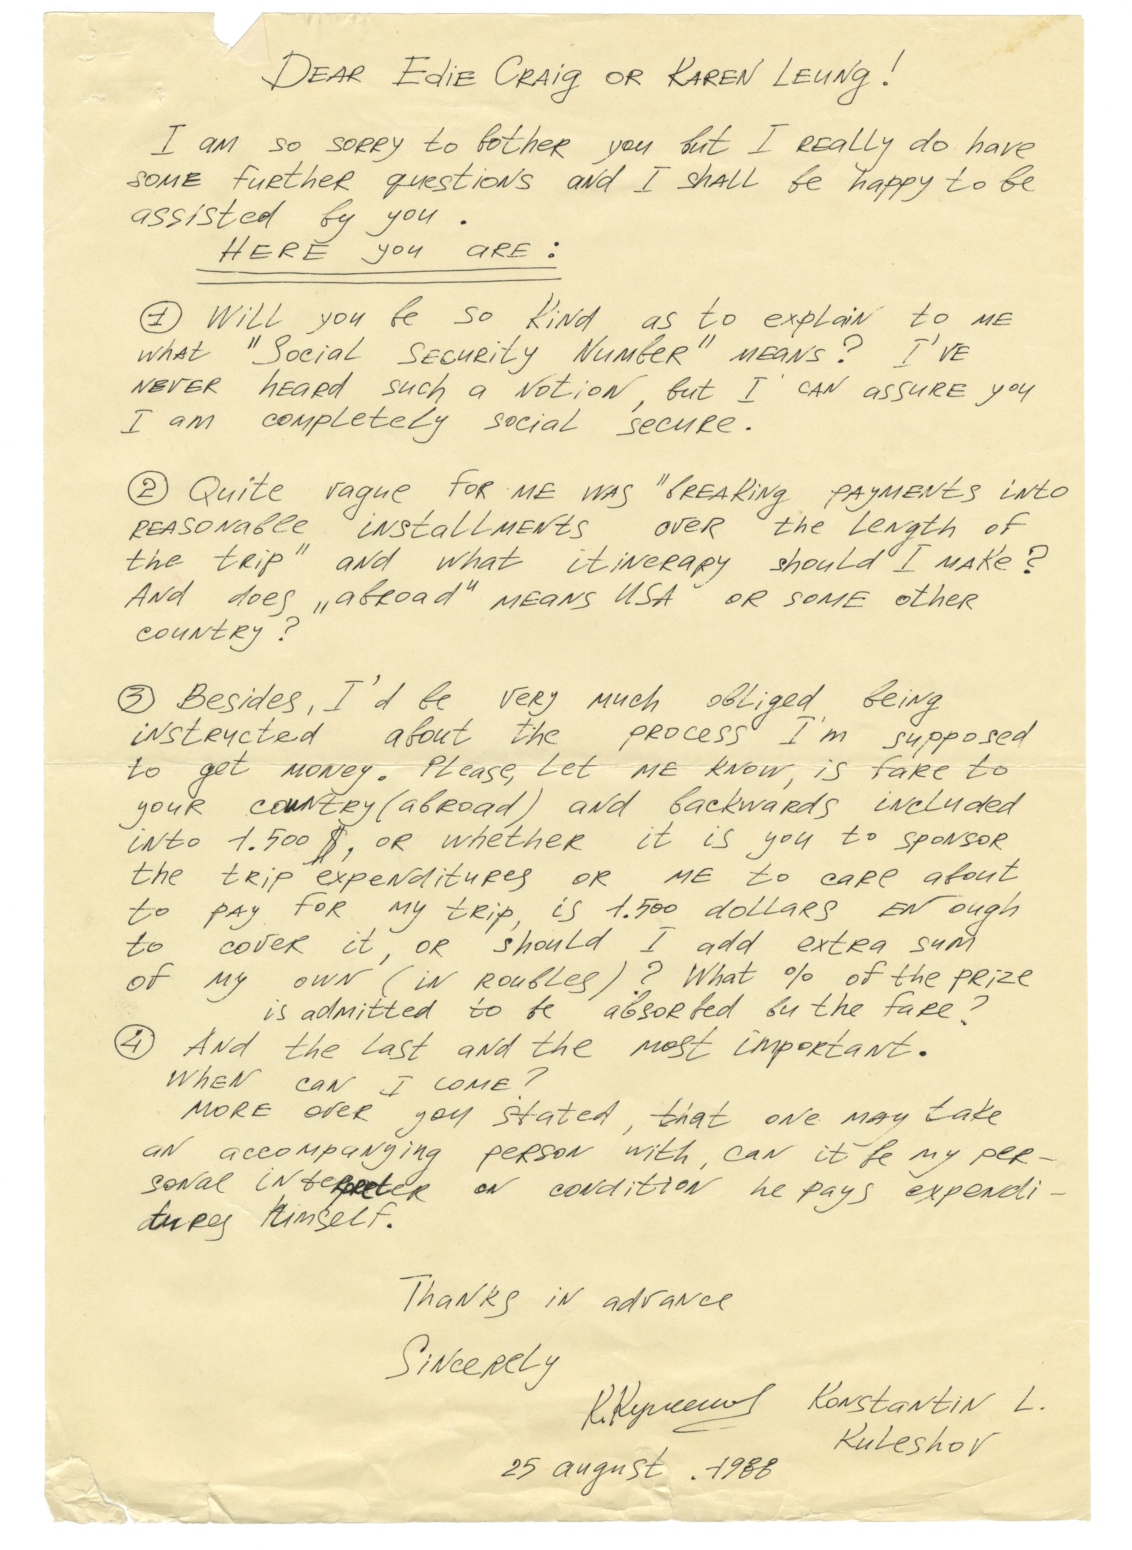 DEAR Edie CRAig OR KAREN LEUNg!
I am so sorry to bother you but I really do have
some further questions and I shall be happy to be
assisted by you.
HERE you ARE:
① Will you be so kind as to explain to me
what "Social Security Number" means? I've
never heard such a notion, but I can assure you
I am completely social secure.
② Quite vague for me was "breaking payments into
reasonable installments over the length of
the trip" and what itinerary should I make?
And does „abroad" means USA or some other
country?
③ Besides, I'd be very much obliged being
instructed about the process I'm supposed
to get money. Please, let me know, is fare to
your country (abroad) and backwards included
into 1.500 $, or whether it is you to sponsor
the trip expenditures or me to care about
to pay for my trip, is 1.500 dollars enough
to cover it, or should I add extra sum
of my own (in roubles)? What % of the prize
is admitted to be absorbed by the fare?
④ And the last and the most important.
When can I come?
More over you stated, that one may take
an accompanying person with, can it be my per-
sonal interpreter on condition he pays expendi-
tures himself.
Thanks in advance
Sincerely
К.Кулешов Konstantin L.
Kuleshov
25 august . 1988